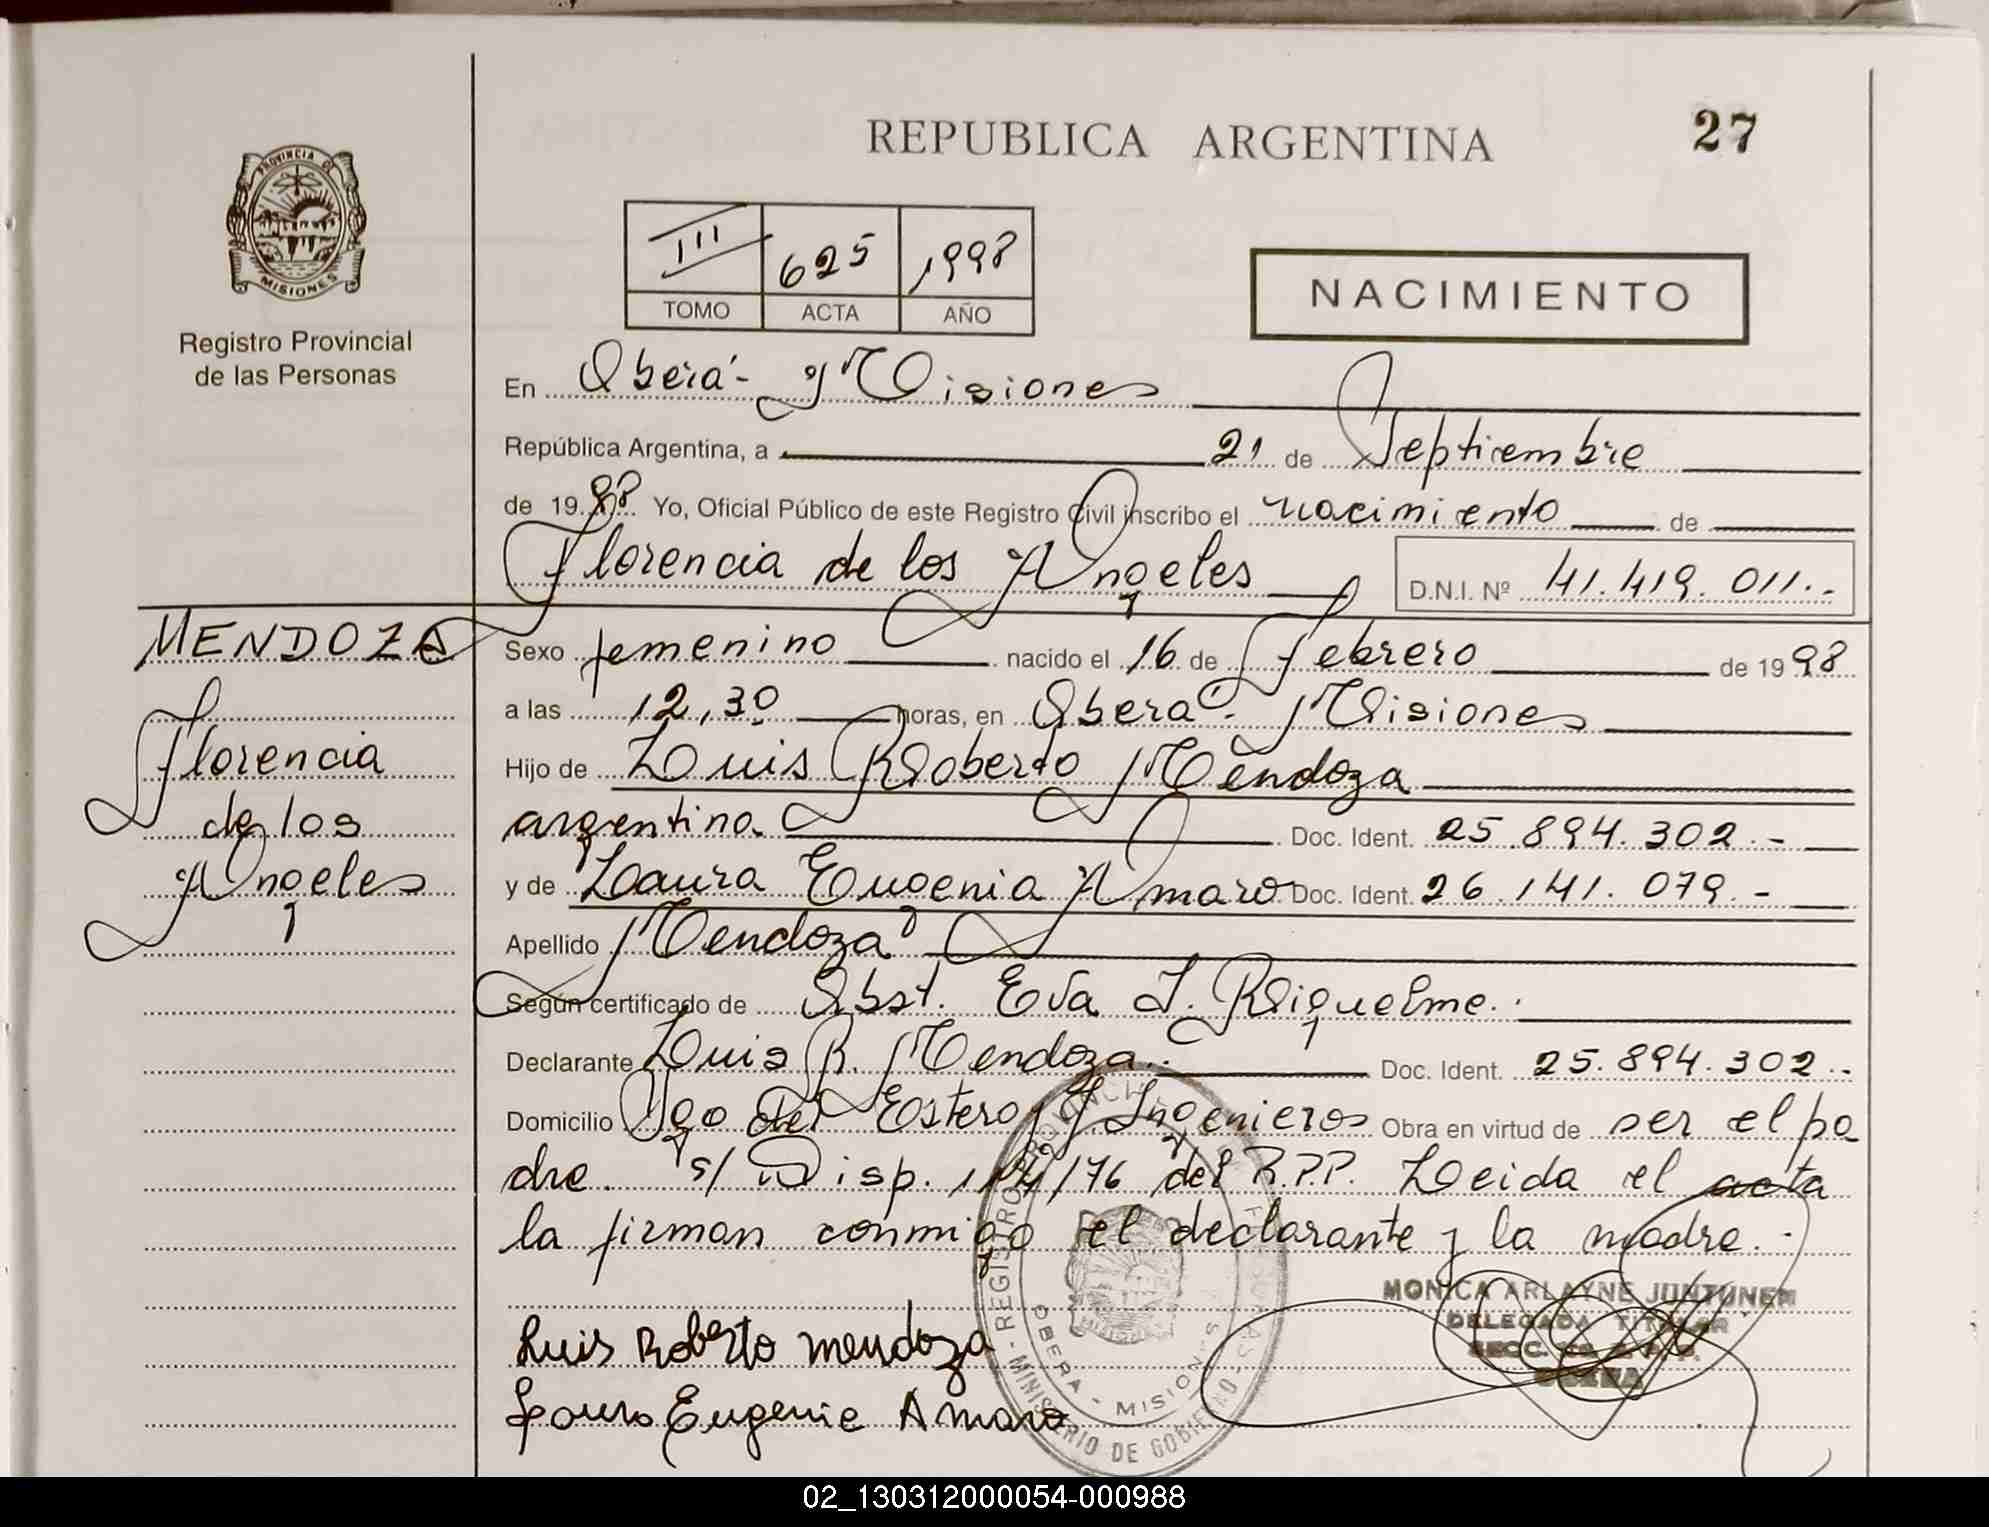 27
REPUBLICA ARGENTINA
PROVINCIA DE
MISIONES
Registro Provincial
de las Personas
III 625 1998
TOMO ACTA AÑO
NACIMIENTO
En Oberá - Misiones
República Argentina, a 21 de Septiembre
de 1998 Yo, Oficial Público de este Registro Civil inscribo el nacimiento de
Florencia de los Angeles D.N.I. Nº 41.419.011.-
MENDOZA
Florencia
de los
Angeles
Sexo femenino nacido el 16 de Febrero de 1998
a las 12,30 horas, en Oberá - Misiones
Hijo de Luis Roberto Mendoza
argentino. Doc. Ident. 25.894.302.-
y de Laura Eugenia Amaro Doc. Ident. 26.141.079.-
Apellido Mendoza
Según certificado de Obst. Eva Riquelme.
Declarante Luis R. Mendoza. Doc. Ident. 25.894.302.-
Domicilio Sgo del Estero y J. Ingenieros Obra en virtud de ser el pa
dre. s/ Disp. /76 del R.P.P. Leida el acta
la firman conmigo el declarante y la madre.-
MONICA ARLAYNE JUNTUNEN
DELEGADA TITULAR
OBERA
Luis Roberto Mendoza
Laura Eugenia Amaro
OBERA - MISIONES
MINISTERIO DE GOBIERNO
02_130312000054-000988